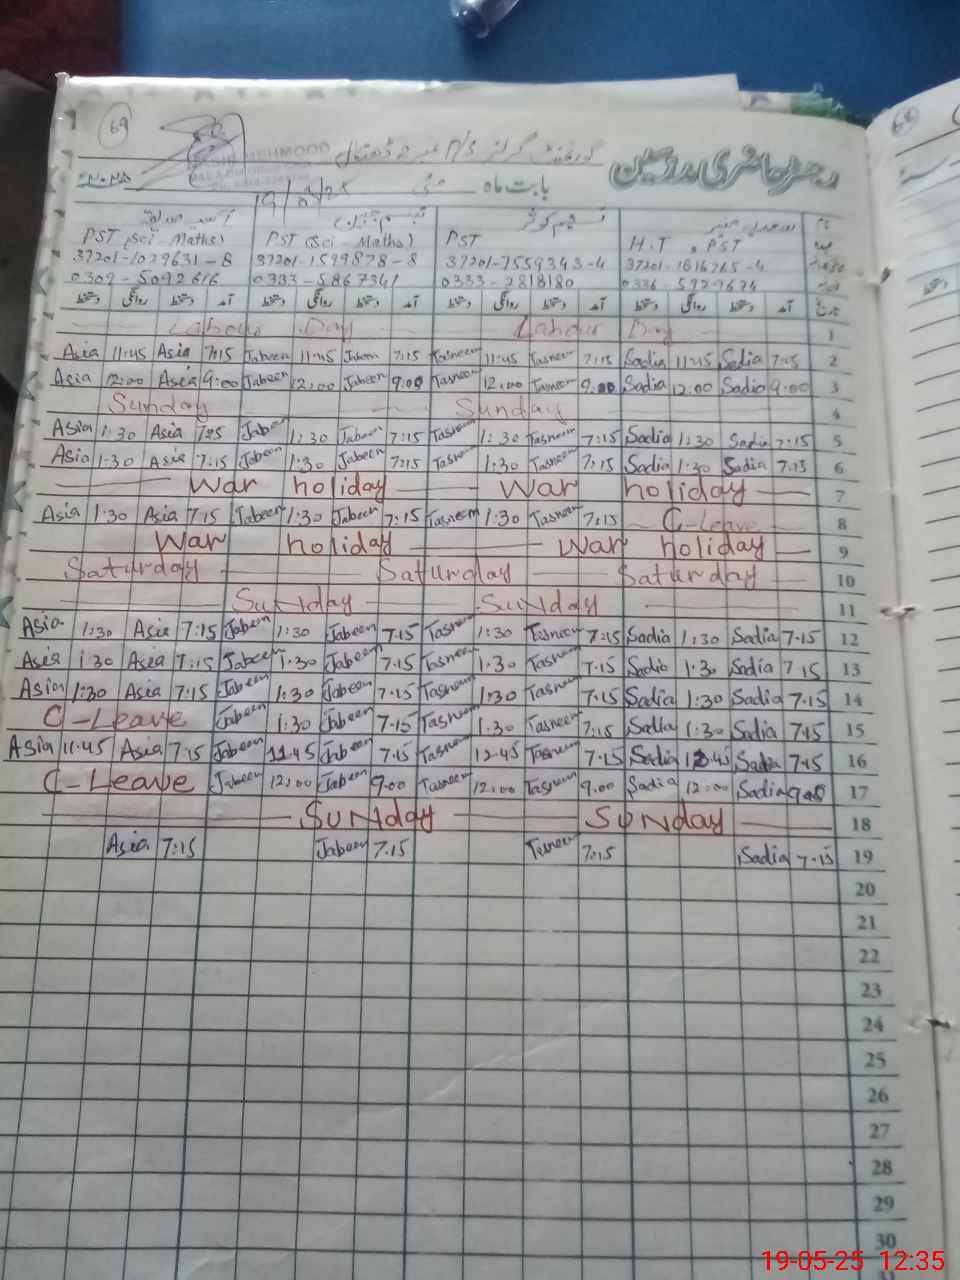 69
رجسٹر حاضری مدرسین
گورنمنٹ گرلز P/S نمبر 2
MEHMOOD
بابت ماہ مئی
PST (Sci Maths) PST (Sci - Maths) PST H.T , PST
37201-1029631-8 37201-1599878-8 37201-7559343-4 37201-1616765-4
0309-5092616 0333-5867341 0333-2818180 0336-5929674
دستخط روانگی دستخط آمد دستخط روانگی دستخط آمد دستخط روانگی دستخط آمد دستخط روانگی دستخط آمد تاریخ
Labour Day Labour Day 1
Asia 11:45 Asia 7:15 Jabeen 11:45 Jabeen 7:15 Tasneem 11:45 Tasneem 7:15 Sadia 11:45 Sadia 7:15 2
Asia 12:00 Asia 9:00 Jabeen 12:00 Jabeen 9:00 Tasneem 12:00 Tasneem 9:00 Sadia 12:00 Sadia 9:00 3
Sunday Sunday 4
Asia 1:30 Asia 7:15 Jabeen 1:30 Jabeen 7:15 Tasneem 1:30 Tasneem 7:15 Sadia 1:30 Sadia 7:15 5
Asia 1:30 Asia 7:15 Jabeen 1:30 Jabeen 7:15 Tasneem 1:30 Tasneem 7:15 Sadia 1:30 Sadia 7:15 6
War holiday War holiday 7
Asia 1:30 Asia 7:15 Jabeen 1:30 Jabeen 7:15 Tasneem 1:30 Tasneem 7:15 C-Leave 8
War holiday War holiday 9
Saturday Saturday Saturday 10
Sunday Sunday 11
Asia 1:30 Asia 7:15 Jabeen 1:30 Jabeen 7:15 Tasneem 1:30 Tasneem 7:15 Sadia 1:30 Sadia 7.15 12
Asia 1:30 Asia 7:15 Jabeen 1.30 Jabeen 7.15 Tasneem 1.30 Tasneem 7.15 Sadia 1.30 Sadia 7.15 13
Asia 1:30 Asia 7:15 Jabeen 1:30 Jabeen 7:15 Tasneem 1:30 Tasneem 7.15 Sadia 1:30 Sadia 7.15 14
C-Leave Jabeen 1:30 Jabeen 7.15 Tasneem 1:30 Tasneem 7:15 Sadia 1:30 Sadia 7.15 15
Asia 11:45 Asia 7:15 Jabeen 11.45 Jabeen 7.15 Tasneem 12-45 Tasneem 7.15 Sadia 12.45 Sadia 7.15 16
C-Leave Jabeen 12:00 Jabeen 9.00 Tasneem 12:00 Tasneem 9.00 Sadia 12:00 Sadia 9.00 17
Sunday Sunday 18
Asia 7:15 Jabeen 7.15 Tasneem 7:15 Sadia 7.15 19
20
21
22
23
24
25
26
27
28
29
30
19-05-25 12:35